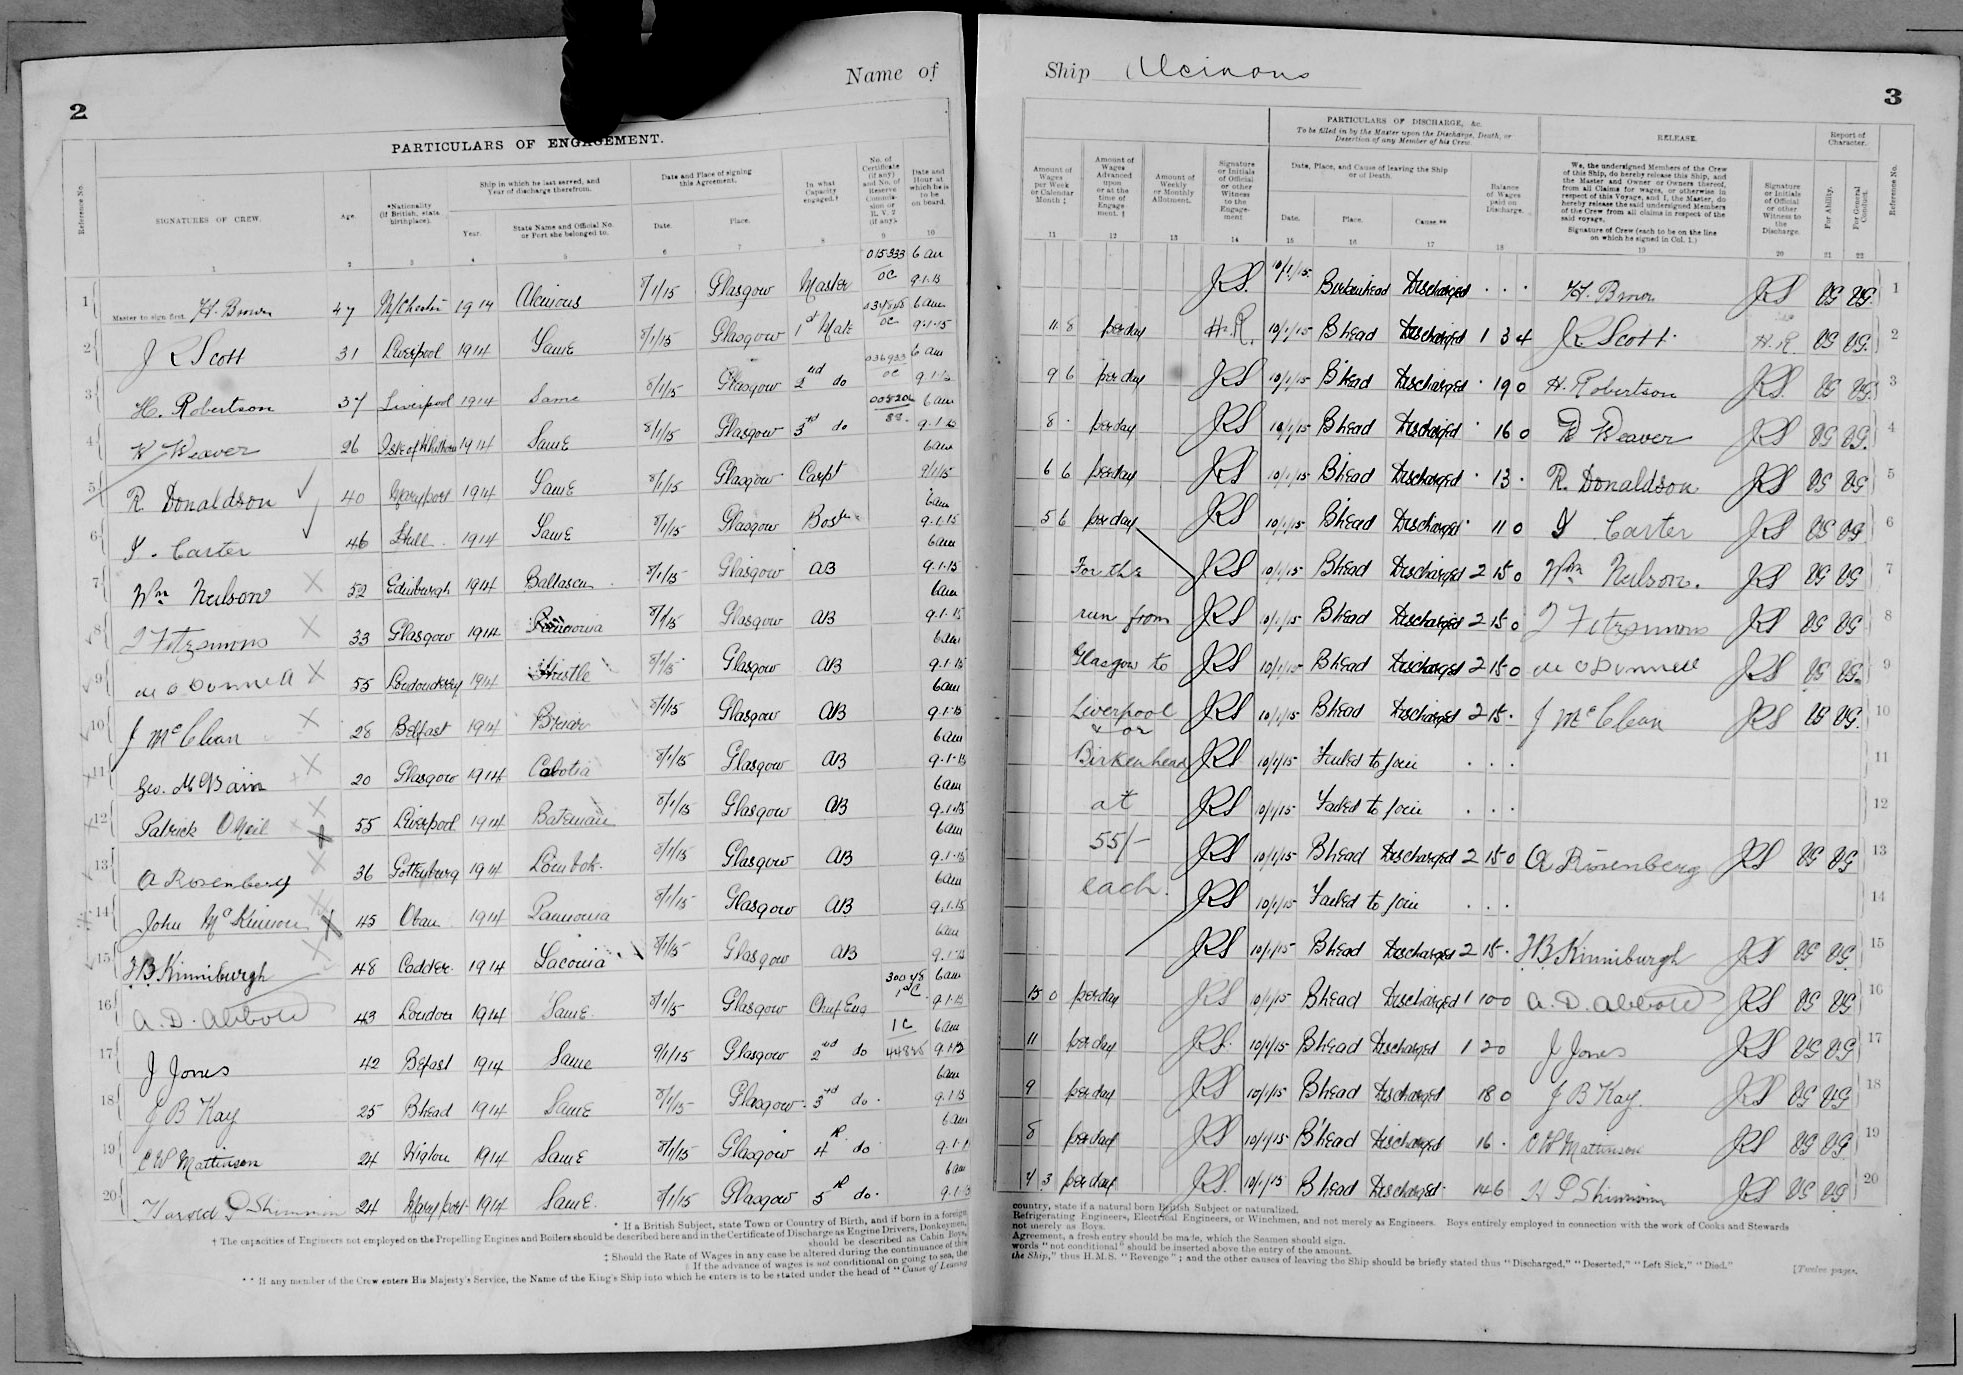 Name of
2
PARTICULARS OF ENGAGEMENT.
Reference No.
SIGNATURES OF CREW.
Age.
*Nationality (If British, state birthplace).
Ship in which he last served, and Year of discharge therefrom.
Year.
State Name and Official No. or Port she belonged to.
Date and Place of signing this Agreement.
Date.
Place.
In what Capacity engaged.†
No. of Certificate (if any) and No. of Reserve Commission or R.V. 2 (if any).
Date and Hour at which he is to be on board.
1 2 3 4 5 6 7 8 9 10
1 Master to sign first. H. Brown 47 M/Chester 1914 Alcinous 8/1/15 Glasgow Master 015933 OC 6 am 9.1.15
2 J R Scott 31 Liverpool 1914 Same 8/1/15 Glasgow 1st Mate OC 6 am 9.1.15
3 H. Robertson 37 Liverpool 1914 Same 8/1/15 Glasgow 2nd do 036933 OC 6 am 9.1.15
4 W Weaver 26 Isle of Whithorn 1914 Same 8/1/15 Glasgow 3rd do 88. 6 am 9.1.15
5 R. Donaldson 40 Maryport 1914 Same 8/1/15 Glasgow Carpt 6am 9/1/15
6 Carter 46 Hull 1914 Same 8/1/15 Glasgow Bosn 6am 9.1.15
7 Wm Neilson 52 Edinburgh 1914 Baltasca 8/1/15 Glasgow AB 6am 9.1.15
8 Fitzsimons 33 Glasgow 1914 Pannonia 8/1/15 Glasgow AB 6am 9.1.15
9 O Donnell 55 Londonderry 1914 Thistle 8/1/15 Glasgow AB 6am 9.1.15
10 J McClean 28 Belfast 1914 Briar 8/1/15 Glasgow AB 6am 9.1.15
11 Geo. McBain 20 Glasgow 1914 Cabotia 8/1/15 Glasgow AB 6am 9.1.15
12 Patrick ONeil 55 Liverpool 1914 Bateman 8/1/15 Glasgow AB 6am 9.1.15
13 A Rosenberg 36 Gottenburg 1914 Lombok 8/1/15 Glasgow AB 6am 9.1.15
14 John McKinnon 45 Oban 1914 Pannonia 8/1/15 Glasgow AB 6am 9.1.15
15 J.B. Kinniburgh 48 Cadder 1914 Laconia 8/1/15 Glasgow AB 6am 9.1.15
16 A. D. Abbott 43 London 1914 Same 8/1/15 Glasgow Chief Eng 1st C. 6am 9.1.15
17 J Jones 42 Befast 1914 Same 9/1/15 Glasgow 2nd do 1C 6am 9.1.15
18 J B Kay 25 Bhead 1914 Same 8/1/15 Glasgow 3rd do 6am 9.1.15
19 C W Mattinson 24 Wigton 1914 Same 8/1/15 Glasgow 4th do 6am 9.1.1
20 Harold P Shimmin 24 Maryport 1914 Same 8/1/15 Glasgow 5th do. 6am 9.1.15
* If a British Subject, state Town or Country of Birth, and if born in a foreign
† The capacities of Engineers not employed on the Propelling Engines and Boilers should be described here and in the Certificate of Discharge as Engine Drivers, Donkeymen,
should be described as Cabin Boys,
‡ Should the Rate of Wages in any case be altered during the continuance of this
If the advance of wages is not conditional on going to sea, the
** If any member of the Crew enters His Majesty's Service, the Name of the King's Ship into which he enters is to be stated under the head of "Cause of Leaving
Ship Alcinous
3
PARTICULARS OF DISCHARGE, &c.
To be filled in by the Master upon the Discharge, Death, or Desertion of any Member of his Crew.
RELEASE.
Report of Character.
Amount of Wages per Week or Calendar Month ‡
Amount of Wages Advanced upon or at the time of Engagement. †
Amount of Weekly or Monthly Allotment.
Signature or Initials of Official or other Witness to the Engagement
Date, Place, and Cause of leaving the Ship or of Death.
Date.
Place.
Cause.**
Balance of Wages paid on Discharge.
We, the undersigned Members of the Crew of this Ship, do hereby release this Ship, and the Master and Owner or Owners thereof, from all Claims for wages, or otherwise in respect of this Voyage, and I, the Master, do hereby release the said undersigned Members of the Crew from all claims in respect of the said voyage.
Signature of Crew (each to be on the line on which he signed in Col. 1.)
Signature or Initials of Official or other Witness to the Discharge.
For Ability.
For General Conduct.
Reference No.
11 12 13 14 15 16 17 18 19 20 21 22
JRS 10/1/15 Birkenhead Discharged . . . H. Brown JRS VG VG 1
11 8 per day H.R. 10/1/15 B'head Discharged 1 3 4 J R Scott H.R. VG VG 2
9 6 per day JRS 10/1/15 B'head Discharged . 19 0 H. Robertson JRS VG VG 3
8 . per day JRS 10/1/15 B'head Discharged . 16 0 W Weaver JRS VG VG 4
6 6 per day JRS 10/1/15 B'head Discharged . 13 . R. Donaldson JRS VG VG 5
5 6 per day JRS 10/1/15 B'head Discharged 11 0 Carter JRS VG VG 6
For the JRS 10/1/15 B'head Discharged 2 15 0 Wm Neilson. JRS VG VG 7
run from JRS 10/1/15 B'head Discharged 2 15 0 Fitzsimons JRS VG VG 8
Glasgow to JRS 10/1/15 B'head Discharged 2 15 0 O Donnell JRS VG VG 9
Liverpool JRS 10/1/15 B'head Discharged 2 15 . J McClean JRS VG VG 10
or
Birkenhead JRS 10/1/15 Failed to join . . . 11
at JRS 10/1/15 Failed to join . . . 12
55/- JRS 10/1/15 Bhead Discharged 2 15 0 A Rosenberg JRS VG VG 13
each. JRS 10/1/15 Failed to join . . . 14
JRS 10/1/15 Bhead Discharged 2 15 . J.B. Kinniburgh JRS VG VG 15
15 0 per day JRS 10/1/15 Bhead Discharged 1 10 0 A. D. Abbott JRS VG VG 16
11 per day JRS. 10/1/15 Bhead Discharged 1 2 0 J Jones JRS VG VG 17
9 per day JRS 10/1/15 Bhead Discharged 18 0 J B Kay. JRS VG VG 18
8 per day JRS 10/1/15 B'head Discharged 16 . C W Mattinson JRS VG VG 19
7 3 per day JRS. 10/1/15 Bhead Discharged 14 6 H P Shimmin JRS VG VG 20
country, state if a natural born British Subject or naturalized.
Refrigerating Engineers, Electrical Engineers, or Winchmen, and not merely as Engineers. Boys entirely employed in connection with the work of Cooks and Stewards
not merely as Boys.
Agreement, a fresh entry should be made, which the Seamen should sign.
words "not conditional" should be inserted above the entry of the amount.
the Ship," thus H.M.S. "Revenge"; and the other causes of leaving the Ship should be briefly stated thus "Discharged," "Deserted," "Left Sick," "Died."
[Twelve pages.